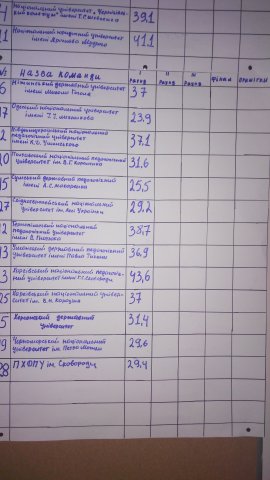 4 Національний університет "Чернігівський колегіум" імені Т.Г.Шевченка 39,1
1 Національний юридичний університет імені Ярослава Мудрого 41,1
№ Назва команди І раунд ІІ раунд раунд фінал примітки
6 Ніжинський державний університет імені Миколи Гоголя 37
17 Одеський національний університет імені І.І. Мечникова 23,9
2 Південноукраїнський національний педагогічний університет імені К.Д. Ушинського 37,1
20 Полтавський національний педагогічний університет ім. В.Г. Короленка 31,6
Сумський державний педагогічний імені А.С. Макаренка 25,5
27 університет ім. Лесі Українки 29,2
12 Тернопільський національний педагогічний університет імені В. Гнатюка 38,7
13 державний педагогічний університет імені Павла Тичини 36,9
3 Харківський національний педагогічний університет імені Г.С. Сковороди 43,6
25 Харківський національний університет ім. В.Н. Каразіна 37
5 Херсонський державний університет 31,4
19 Чорноморський національний університет ім. Петра Могили 29,6
28 ПХДПУ ім. Сковороди 29,4